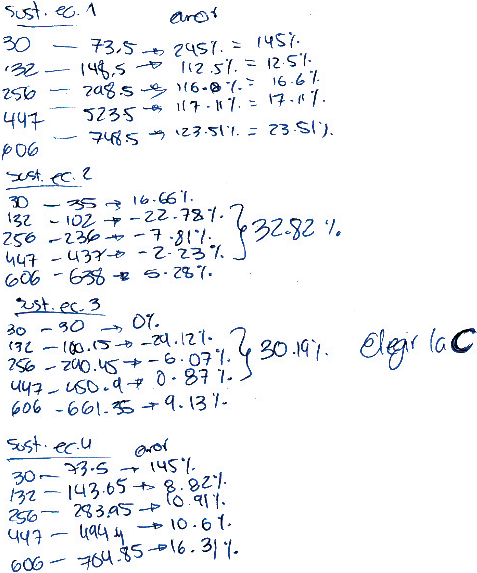 sust. ec. 1 error
30 — 73.5 → 245% = 145%
132 — 148.5 → 112.5% = 12.5%
256 — 298.5 → 116.6% = 16.6%
447 — 523.5 → 117.11% = 17.11%
606 — 748.5 → 123.51% = 23.51%
sust. ec. 2
30 — 35 → 16.66%
132 — 102 → -22.78%
256 — 236 → -7.81% } 32.82%
447 — 437 → -2.23%
606 — 638 → 5.28%
sust. ec. 3
30 — 30 → 0%
132 — 100.15 → -24.12%
256 — 240.45 → -6.07% } 30.19% elegir la C
447 — 450.9 → 0.87%
606 - 661.35 → 9.13%
sust. ec. 4 error
30 — 73.5 → 145%
132 — 143.65 → 8.82%
256 — 283.95 → 10.91%
447 — 494.4 → 10.6%
606 — 704.85 → 16.31%